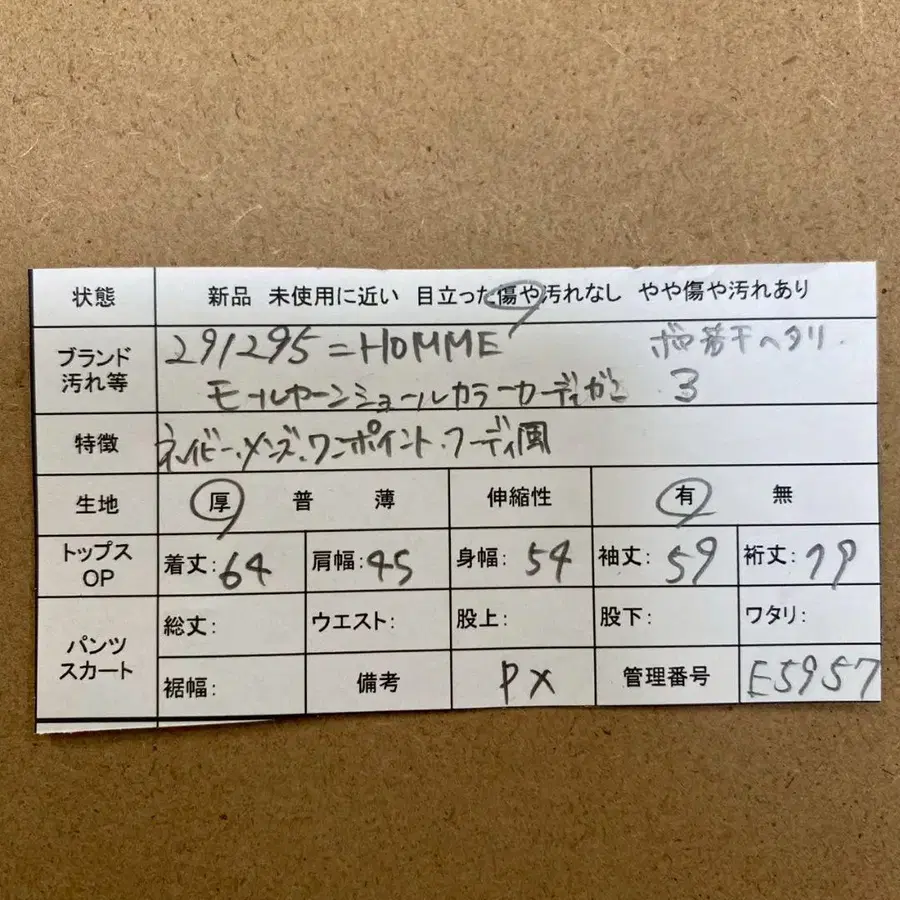 状態 新品 未使用に近い 目立った傷や汚れなし やや傷や汚れあり
ブランド 汚れ等 291295=HOMME 若干ヘタリ.
モールヤーンショールカラーカーディガン 3
特徴 ネイビー.メンズ.ワンポイント.フーディ風
生地 厚 普 薄 伸縮性 有 無
トップス OP 着丈:64 肩幅:45 身幅:54 袖丈:59 裄丈:79
パンツ スカート 総丈: ウエスト: 股上: 股下: ワタリ:
裾幅: 備考 PX 管理番号 E5957